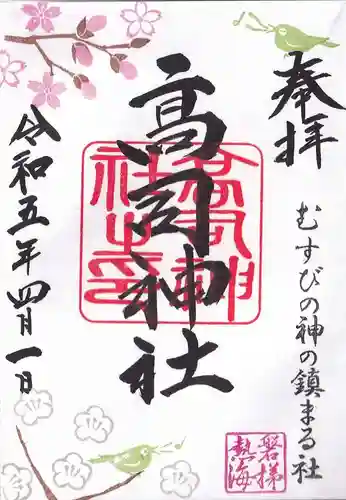 奉拝
むすびの神の鎮まる社
高司神社
高司神社之印
令和五年四月一日
磐梯熱海